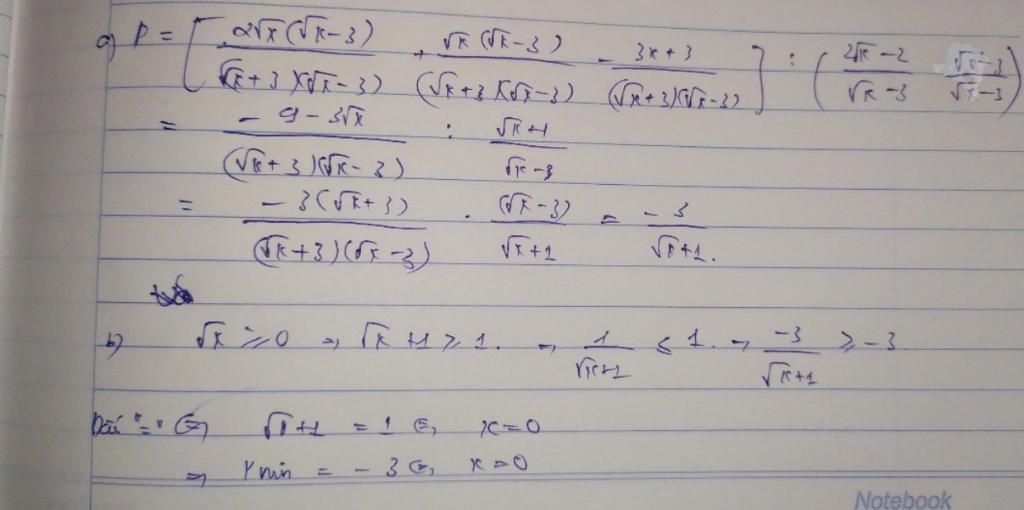 a) P = [ 2√x(√x-3) / (√x+3)(√x-3) + √x(√x-3) / (√x+3)(√x-3) - 3x+3 / (√x+3)(√x-3) ] : ( 2√x-2 / √x-3 √x-3 / √x-3 )
= -9-3√x / (√x+3)(√x-3) : √x+1 / √x-3
= -3(√x+3) / (√x+3)(√x-3) . (√x-3) / √x+1 = -3 / √x+1.
b) √x ≥ 0 => √x+1 ≥ 1. => 1 / √x+1 ≤ 1. => -3 / √x+1 ≥ -3
Dấu "=" <=> √x+1 = 1 <=> x=0
=> Pmin = -3 <=> x=0
Notebook